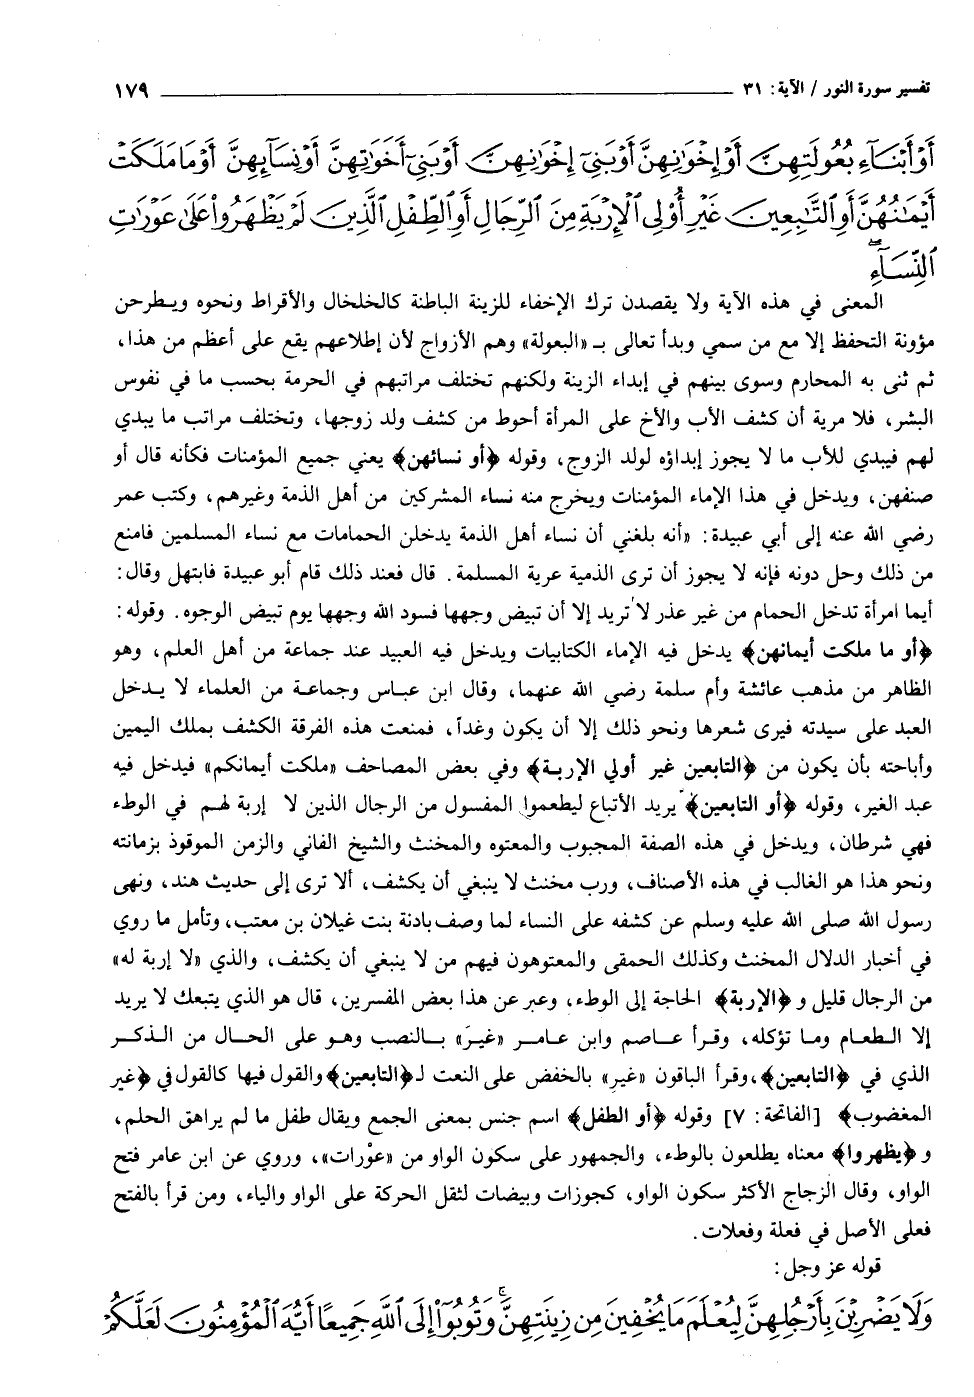 تفسير سورة النور / الآية: ٣١ ١٧٩
أَوْ أَبْنَآءِ بُعُولَتِهِنَّ أَوْ إِخْوَٰنِهِنَّ أَوْ بَنِىٓ إِخْوَٰنِهِنَّ أَوْ بَنِىٓ أَخَوَٰتِهِنَّ أَوْ نِسَآئِهِنَّ أَوْ مَا مَلَكَتْ
أَيْمَٰنُهُنَّ أَوِ ٱلتَّٰبِعِينَ غَيْرِ أُو۟لِى ٱلْإِرْبَةِ مِنَ ٱلرِّجَالِ أَوِ ٱلطِّفْلِ ٱلَّذِينَ لَمْ يَظْهَرُوا۟ عَلَىٰ عَوْرَٰتِ
ٱلنِّسَآءِ ۖ
المعنى في هذه الآية ولا يقصدن ترك الإخفاء للزينة الباطنة كالخلخال والأقراط ونحوه ويطرحن
مؤونة التحفظ إلا مع من سمي وبدأ تعالى بـ «البعولة» وهم الأزواج لأن إطلاعهم يقع على أعظم من هذا،
ثم ثنى به المحارم وسوى بينهم في إبداء الزينة ولكنهم تختلف مراتبهم في الحرمة بحسب ما في نفوس
البشر، فلا مرية أن كشف الأب والأخ على المرأة أحوط من كشف ولد زوجها، وتختلف مراتب ما يبدي
لهم فيبدي للأب ما لا يجوز إبداؤه لولد الزوج، وقوله ﴿أو نسائهن﴾ يعني جميع المؤمنات فكأنه قال أو
صنفهن، ويدخل في هذا الإماء المؤمنات ويخرج منه نساء المشركين من أهل الذمة وغيرهم، وكتب عمر
رضي الله عنه إلى أبي عبيدة: «أنه بلغني أن نساء أهل الذمة يدخلن الحمامات مع نساء المسلمين فامنع
من ذلك وحل دونه فإنه لا يجوز أن ترى الذمية عرية المسلمة. قال فعند ذلك قام أبو عبيدة فابتهل وقال:
أيما امرأة تدخل الحمام من غير عذر لا تريد إلا أن تبيض وجهها فسود الله وجهها يوم تبيض الوجوه. وقوله:
﴿أو ما ملكت أيمانهن﴾ يدخل فيه الإماء الكتابيات ويدخل فيه العبيد عند جماعة من أهل العلم، وهو
الظاهر من مذهب عائشة وأم سلمة رضي الله عنهما، وقال ابن عباس وجماعة من العلماء لا يدخل
العبد على سيدته فيرى شعرها ونحو ذلك إلا أن يكون وغداً، فمنعت هذه الفرقة الكشف بملك اليمين
وأباحته بأن يكون من ﴿التابعين غير أولي الإربة﴾ وفي بعض المصاحف «ملكت أيمانكم» فيدخل فيه
عبد الغير، وقوله ﴿أو التابعين﴾ يريد الأتباع ليطعموا المفسول من الرجال الذين لا إربة لهم في الوطء
فهي شرطان، ويدخل في هذه الصفة المجبوب والمعتوه والمخنث والشيخ الفاني والزمن الموقوذ بزمانته
ونحو هذا هو الغالب في هذه الأصناف، ورب مخنث لا ينبغي أن يكشف، ألا ترى إلى حديث هند، ونهى
رسول الله صلى الله عليه وسلم عن كشفه على النساء لما وصف بادنة بنت غيلان بن معتب، وتأمل ما روي
في أخبار الدلال المخنث وكذلك الحمقى والمعتوهون فيهم من لا ينبغي أن يكشف، والذي «لا إربة له»
من الرجال قليل و ﴿الإربة﴾ الحاجة إلى الوطء، وعبر عن هذا بعض المفسرين، قال هو الذي يتبعك لا يريد
إلا الطعام وما تؤكله، وقرأ عاصم وابن عامر «غيرَ» بالنصب وهو على الحال من الذكر
الذي في ﴿التابعين﴾، وقرأ الباقون «غيرِ» بالخفض على النعت لـ ﴿التابعين﴾ والقول فيها كالقول في ﴿غير
المغضوب﴾ [الفاتحة: ٧] وقوله ﴿أو الطفل﴾ اسم جنس بمعنى الجمع ويقال طفل ما لم يراهق الحلم،
و ﴿يظهروا﴾ معناه يطلعون بالوطء، والجمهور على سكون الواو من «عوْرات»، وروي عن ابن عامر فتح
الواو، وقال الزجاج الأكثر سكون الواو، كجوزات وبيضات لثقل الحركة على الواو والياء، ومن قرأ بالفتح
فعلى الأصل في فعلة وفعلات.
قوله عز وجل:
وَلَا يَضْرِبْنَ بِأَرْجُلِهِنَّ لِيُعْلَمَ مَا يُخْفِينَ مِن زِينَتِهِنَّ ۚ وَتُوبُوٓا۟ إِلَى ٱللَّهِ جَمِيعًا أَيُّهَ ٱلْمُؤْمِنُونَ لَعَلَّكُمْ